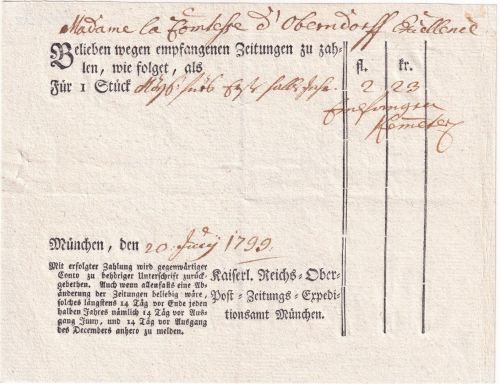 Madame la Comtesse d'Oberndorff Excellence
Belieben wegen empfangenen Zeitungen zu zah-
len, wie folget, als
fl. kr.
Für 1 Stück 2 23
Empfangen
München, den 20 Juny 1799.
Mit erfolgter Zahlung wird gegenwärtiger
Conto zu behöriger Unterschrift zurück-
gebethen. Auch wenn allenfalls eine Ab-
änderung der Zeitungen beliebig wäre,
solches längstens 14 Täg vor Ende jeden
halben Jahres nämlich 14 Täg vor Aus-
gang Juny, und 14 Täg vor Ausgang
des Decembers anhero zu melden.
Kaiserl. Reichs-Ober-
Post-Zeitungs-Expedi-
tionsamt München.